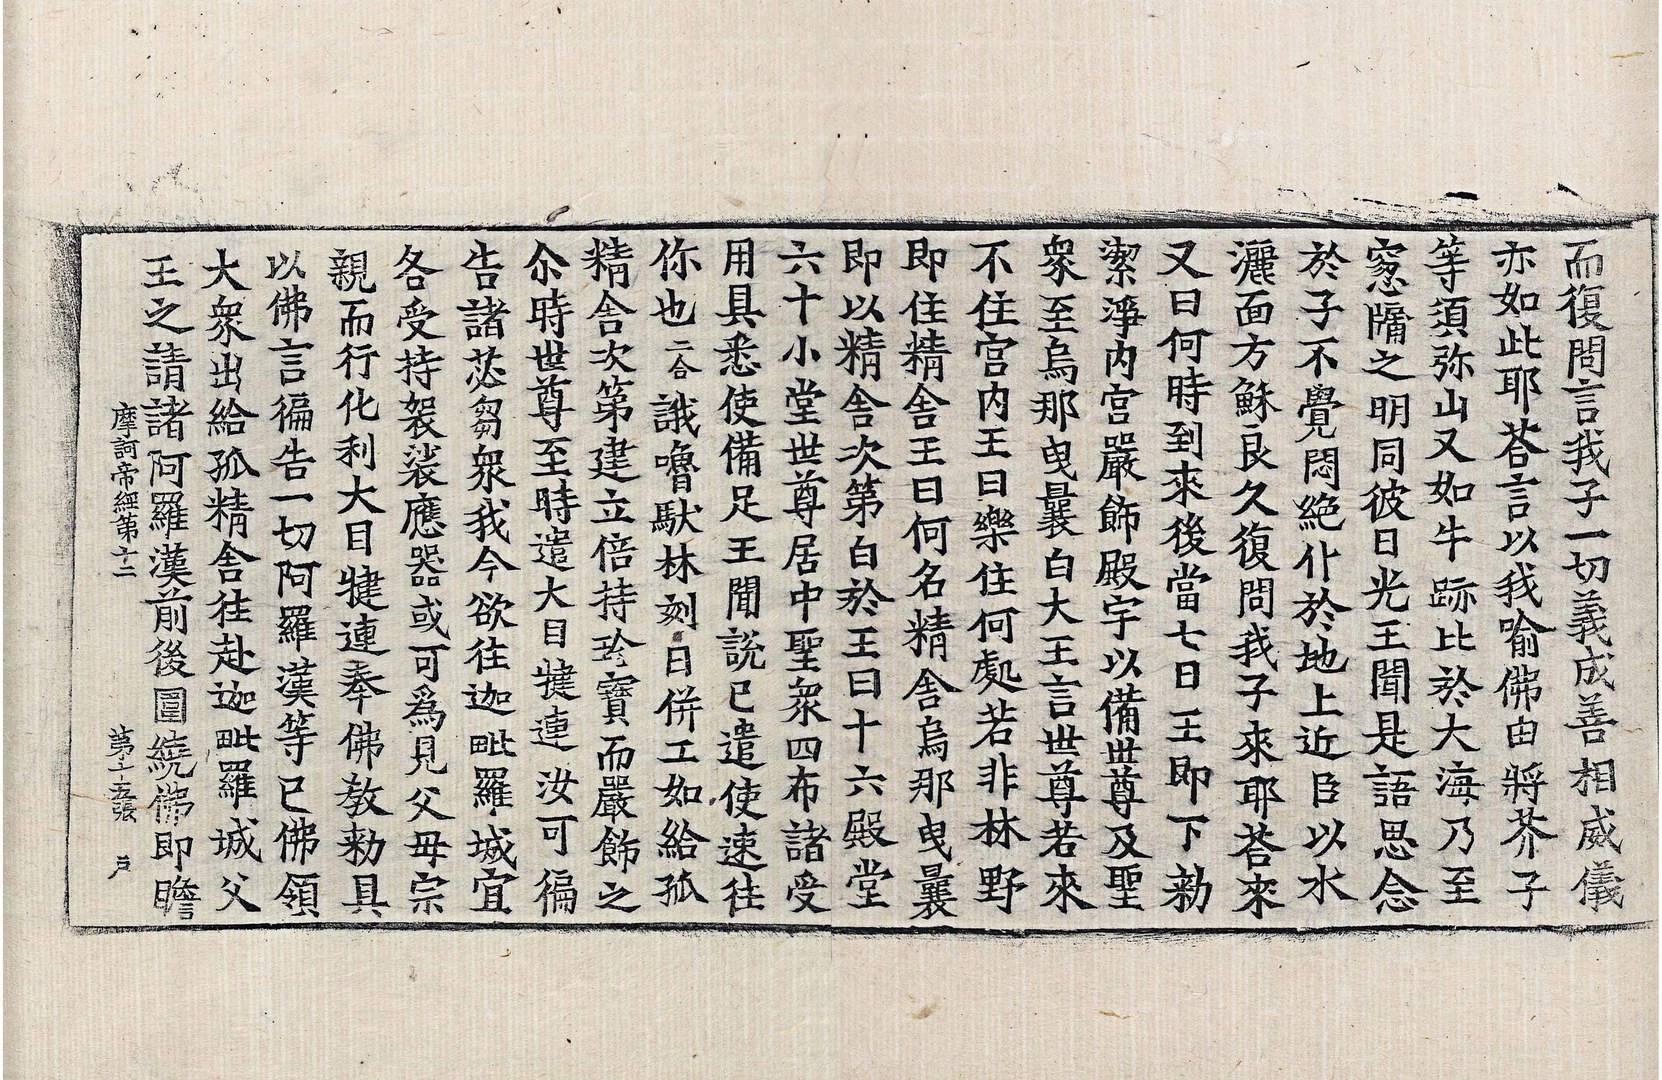 而復問言我子一切義成善相威儀
亦如此耶荅言以我喻佛由將芥子
等須弥山又如牛跡比於大海乃至
窓牖之明同彼日光王聞是語思念
於子不覺悶絶仆於地上近臣以水
灑面方穌良久復問我子來耶荅來
又曰何時到來後當七日王即下勑
潔淨内宫嚴飾殿宇以備世尊及聖
衆至烏那曳曩白大王言世尊若來
不住宫内王曰樂住何處若非林野
即住精舎王曰何名精舎烏那曳曩
即以精舎次第白於王曰十六殿堂
六十小堂世尊居中聖衆四布諸受
用具悉使備足王聞說已遣使速往
你也二合誐嚕馱林刻日併工如給孤
精舎次第建立倍持珎寳而嚴飾之
尒時世尊至時遣大目犍連汝可徧
告諸苾芻衆我今欲往迦毗羅城宜
各受持袈裟應器或可爲見父母宗
親而行化利大目犍連奉佛教勑具
以佛言徧告一切阿羅漢等已佛領
大衆出給孤精舎往赴迦毗羅城父
王之請諸阿羅漢前後圍繞佛即瞻
摩訶帝經第十二 第十五張 户